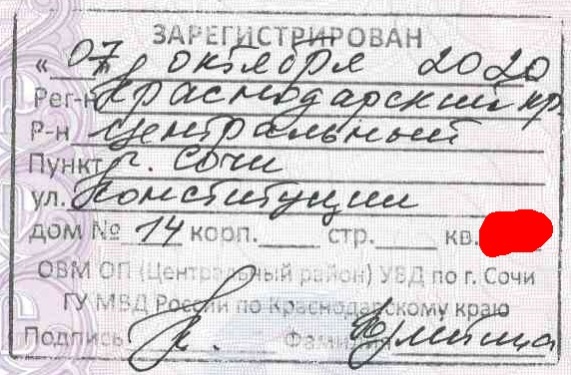 ЗАРЕГИСТРИРОВАН
« 07 октября 2020
Рег-н Краснодарский кр.
Р-н Центральный
Пункт г. Сочи
ул. Конституции
дом № 14 корп. стр. кв.
ОВМ ОП (Центральный район) УВД по г. Сочи
ГУ МВД России по Краснодарскому краю
Подпись Фамилия